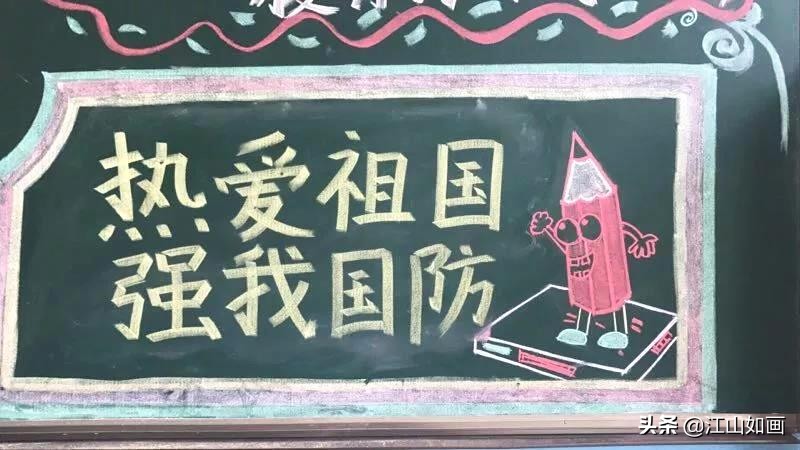 热爱祖国
强我国防
头条 @江山如画